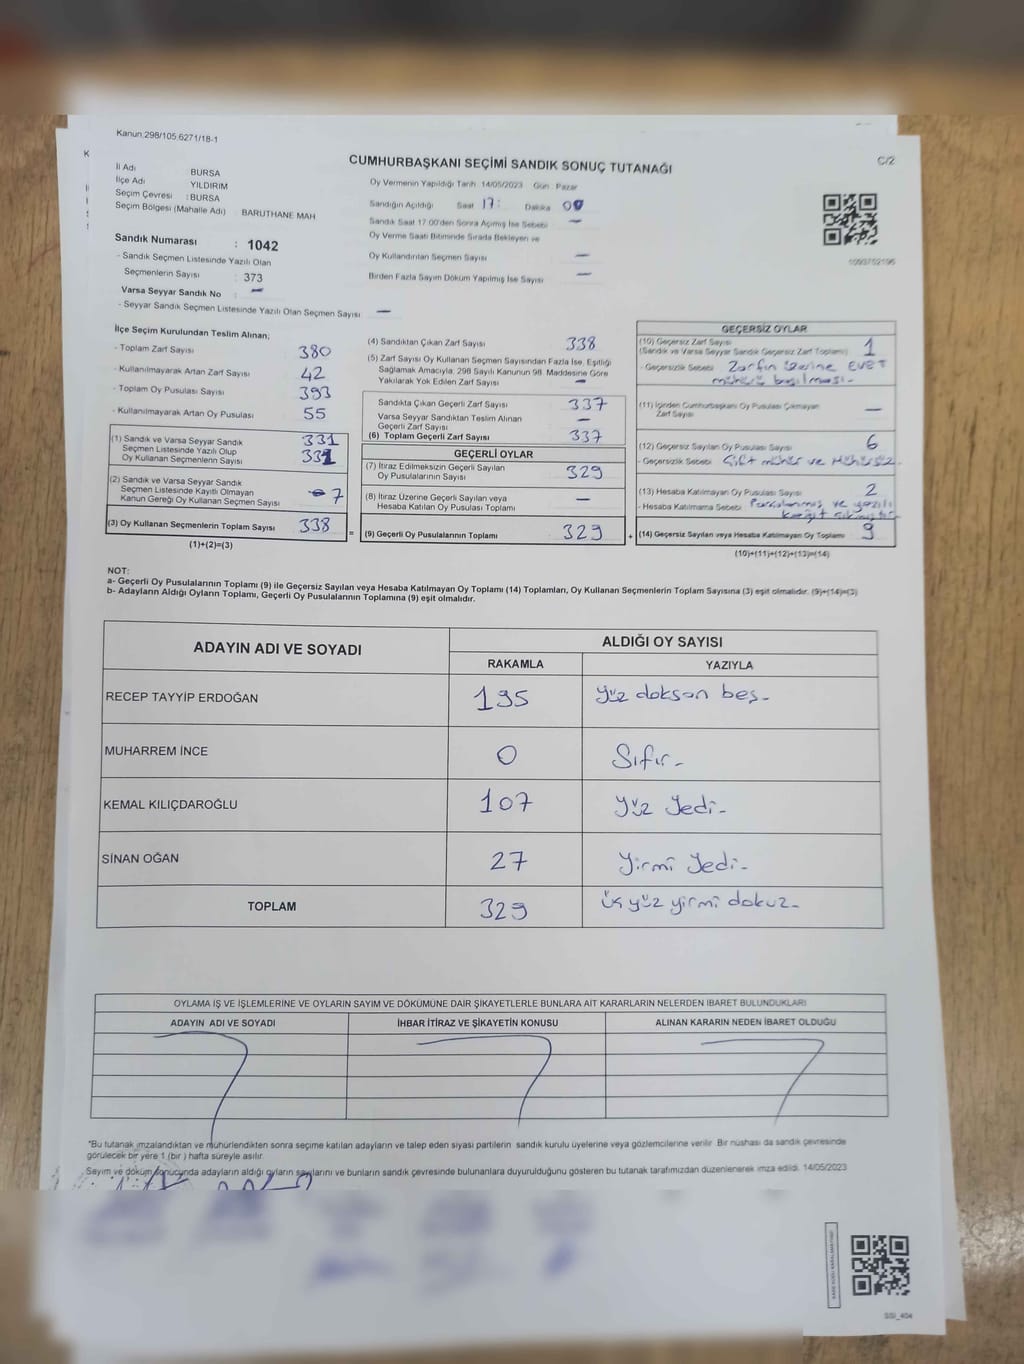 Kanun:298/105,6271/18-1
C/2
CUMHURBAŞKANI SEÇİMİ SANDIK SONUÇ TUTANAĞI
İli Adı BURSA
İlçe Adı YILDIRIM
Seçim Çevresi : BURSA
Seçim Bölgesi (Mahalle Adı) BARUTHANE MAH
Sandık Numarası : 1042
- Sandık Seçmen Listesinde Yazılı Olan
Seçmenlerin Sayısı : 373
Varsa Seyyar Sandık No : —
- Seyyar Sandık Seçmen Listesinde Yazılı Olan Seçmen Sayısı —
Oy Vermenin Yapıldığı Tarih 14/05/2023 Gün Pazar
Sandığın Açıldığı Saat 17: Dakika 00
Sandık Saat 17:00'den Sonra Açılmış İse Sebebi —
Oy Verme Saati Bitiminde Sırada Bekleyen ve
Oy Kullandırılan Seçmen Sayısı —
Birden Fazla Sayım Döküm Yapılmış İse Sayısı —
1093752196
İlçe Seçim Kurulundan Teslim Alınan;
- Toplam Zarf Sayısı 380
- Kullanılmayarak Artan Zarf Sayısı 42
- Toplam Oy Pusulası Sayısı 393
- Kullanılmayarak Artan Oy Pusulası 55
(1) Sandık ve Varsa Seyyar Sandık 331
Seçmen Listesinde Yazılı Olup
Oy Kullanan Seçmenlerin Sayısı 331
(2) Sandık ve Varsa Seyyar Sandık
Seçmen Listesinde Kayıtlı Olmayan
Kanun Gereği Oy Kullanan Seçmen Sayısı 7
(3) Oy Kullanan Seçmenlerin Toplam Sayısı 338
(1)+(2)=(3)
(4) Sandıktan Çıkan Zarf Sayısı 338
(5) Zarf Sayısı Oy Kullanan Seçmen Sayısından Fazla İse, Eşitliği
Sağlamak Amacıyla, 298 Sayılı Kanunun 98. Maddesine Göre
Yakılarak Yok Edilen Zarf Sayısı —
Sandıkta Çıkan Geçerli Zarf Sayısı 337
Varsa Seyyar Sandıktan Teslim Alınan
Geçerli Zarf Sayısı —
(6) Toplam Geçerli Zarf Sayısı 337
GEÇERLİ OYLAR
(7) İtiraz Edilmeksizin Geçerli Sayılan
Oy Pusulalarının Sayısı 329
(8) İtiraz Üzerine Geçerli Sayılan veya
Hesaba Katılan Oy Pusulası Toplamı —
= (9) Geçerli Oy Pusulalarının Toplamı 329 +
GEÇERSİZ OYLAR
(10) Geçersiz Zarf Sayısı
(Sandık ve Varsa Seyyar Sandık Geçersiz Zarf Toplamı) 1
- Geçersizlik Sebebi Zarfın üzerine EVET
mührü basılması-
(11) İçinden Cumhurbaşkanı Oy Pusulası Çıkmayan
Zarf Sayısı —
(12) Geçersiz Sayılan Oy Pusulası Sayısı 6
- Geçersizlik Sebebi Çift mühür ve Mühürsüz.
(13) Hesaba Katılmayan Oy Pusulası Sayısı 2
- Hesaba Katılmama Sebebi Parçalanmış ve yazılı
kağıt çıkmıştır
(14) Geçersiz Sayılan veya Hesaba Katılmayan Oy Toplamı 9
(10)+(11)+(12)+(13)=(14)
NOT:
a- Geçerli Oy Pusulalarının Toplamı (9) ile Geçersiz Sayılan veya Hesaba Katılmayan Oy Toplamı (14) Toplamları, Oy Kullanan Seçmenlerin Toplam Sayısına (3) eşit olmalıdır. (9)+(14)=(3)
b- Adayların Aldığı Oyların Toplamı, Geçerli Oy Pusulalarının Toplamına (9) eşit olmalıdır.
ADAYIN ADI VE SOYADI ALDIĞI OY SAYISI
RAKAMLA YAZIYLA
RECEP TAYYİP ERDOĞAN 195 Yüz doksan beş-
MUHARREM İNCE 0 Sıfır-
KEMAL KILIÇDAROĞLU 107 Yüz Yedi-
SİNAN OĞAN 27 Yirmi Yedi-
TOPLAM 329 Üç yüz yirmi dokuz-
OYLAMA İŞ VE İŞLEMLERİNE VE OYLARIN SAYIM VE DÖKÜMÜNE DAİR ŞİKAYETLERLE BUNLARA AİT KARARLARIN NELERDEN İBARET BULUNDUKLARI
ADAYIN ADI VE SOYADI İHBAR İTİRAZ VE ŞİKAYETİN KONUSU ALINAN KARARIN NEDEN İBARET OLDUĞU
*Bu tutanak imzalandıktan ve mühürlendikten sonra seçime katılan adayların ve talep eden siyasi partilerin sandık kurulu üyelerine veya gözlemcilerine verilir. Bir nüshası da sandık çevresinde
görülecek bir yere 1 (bir) hafta süreyle asılır.
Sayım ve döküm sonucunda adayların aldığı oyların sayılarını ve bunların sandık çevresinde bulunanlara duyurulduğunu gösteren bu tutanak tarafımızdan düzenlenerek imza edildi. 14/05/2023
SSI_404